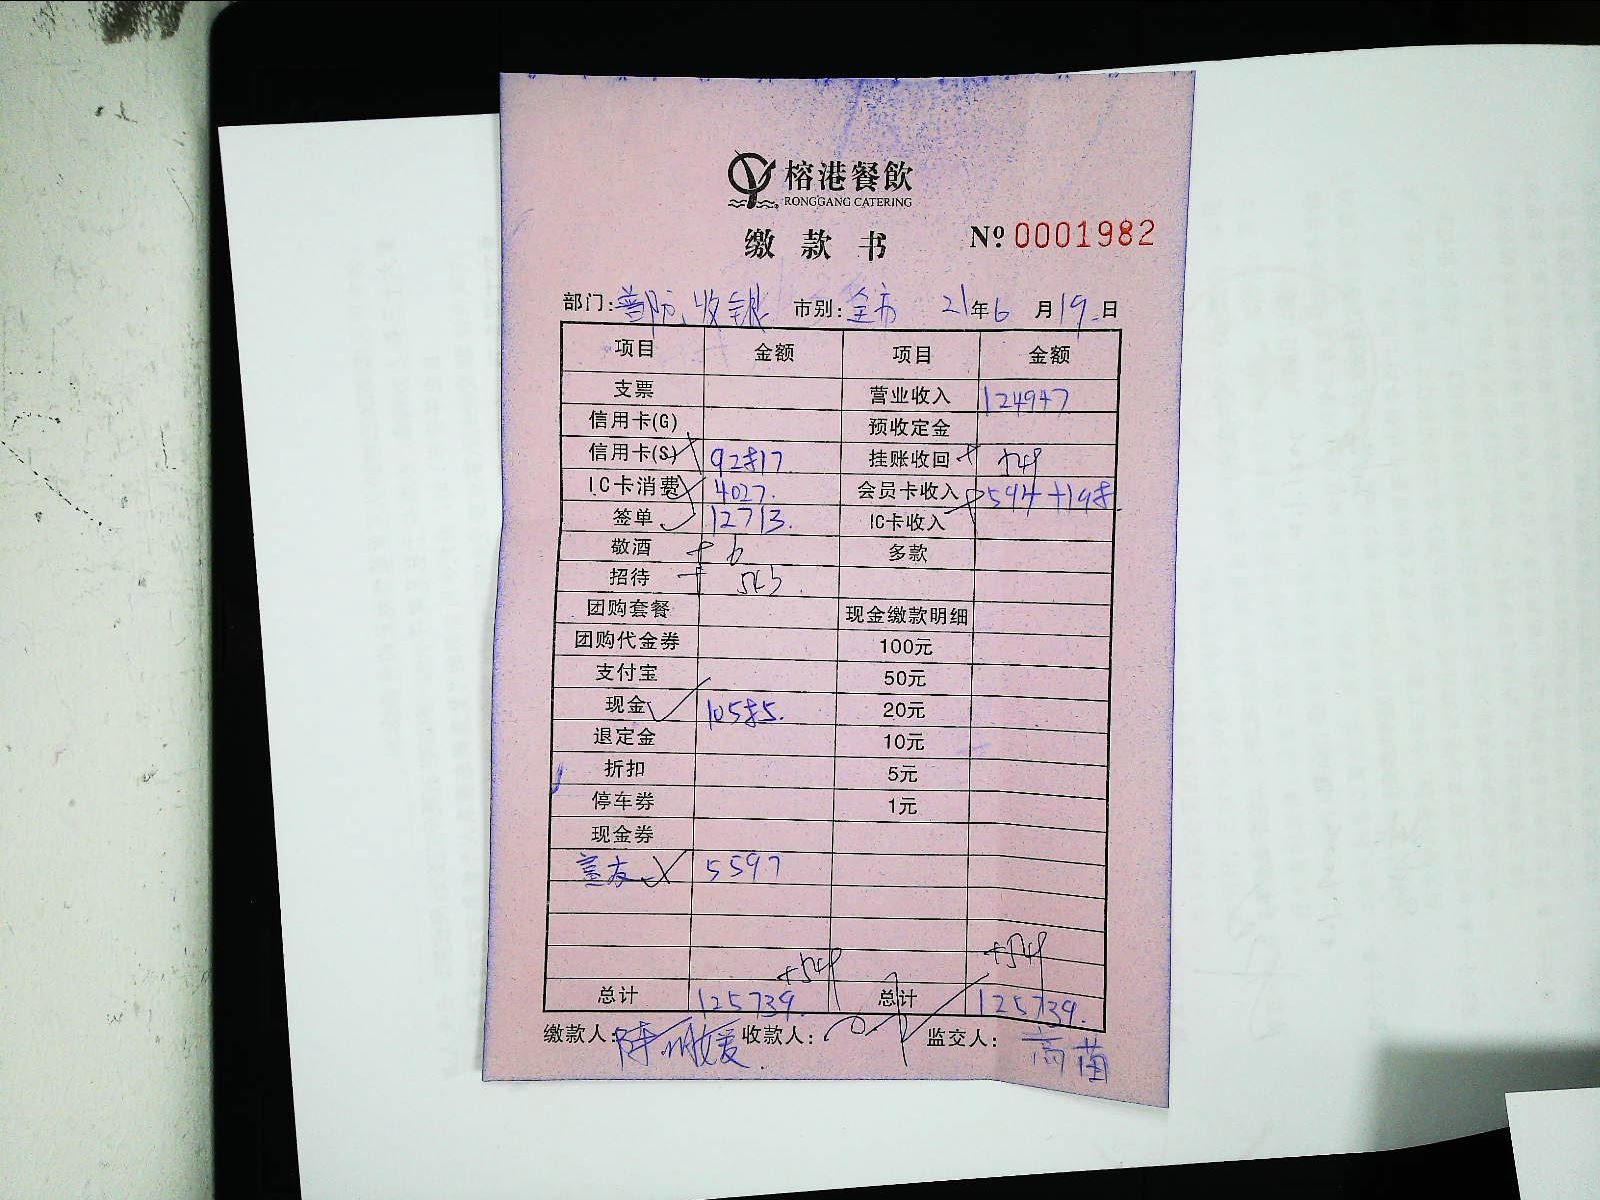 榕港餐飲
RONGGANG CATERING
缴款书 Nº 0001982
部门: 收银 市别: 全市 21年6月19日
项目 金额 项目 金额
支票 营业收入 124947
信用卡(G) 预收定金
信用卡(S) 92817 挂账收回
IC卡消费 4027. 会员卡收入 594+198.
签单 12713. IC卡收入
敬酒 +6 多款
招待 +
团购套餐 现金缴款明细
团购代金券 100元
支付宝 50元
现金 10585. 20元
退定金 10元
折扣 5元
停车券 1元
现金券
5597
+549 +549
总计 125739. 总计 125739.
缴款人: 收款人: 监交人: 高苗